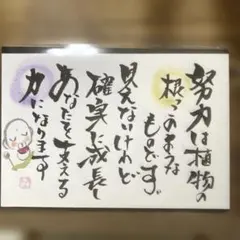 努力は植物の
根っこのような
ものです
見えないけれど
確実に成長し
あなたを支える
力になります